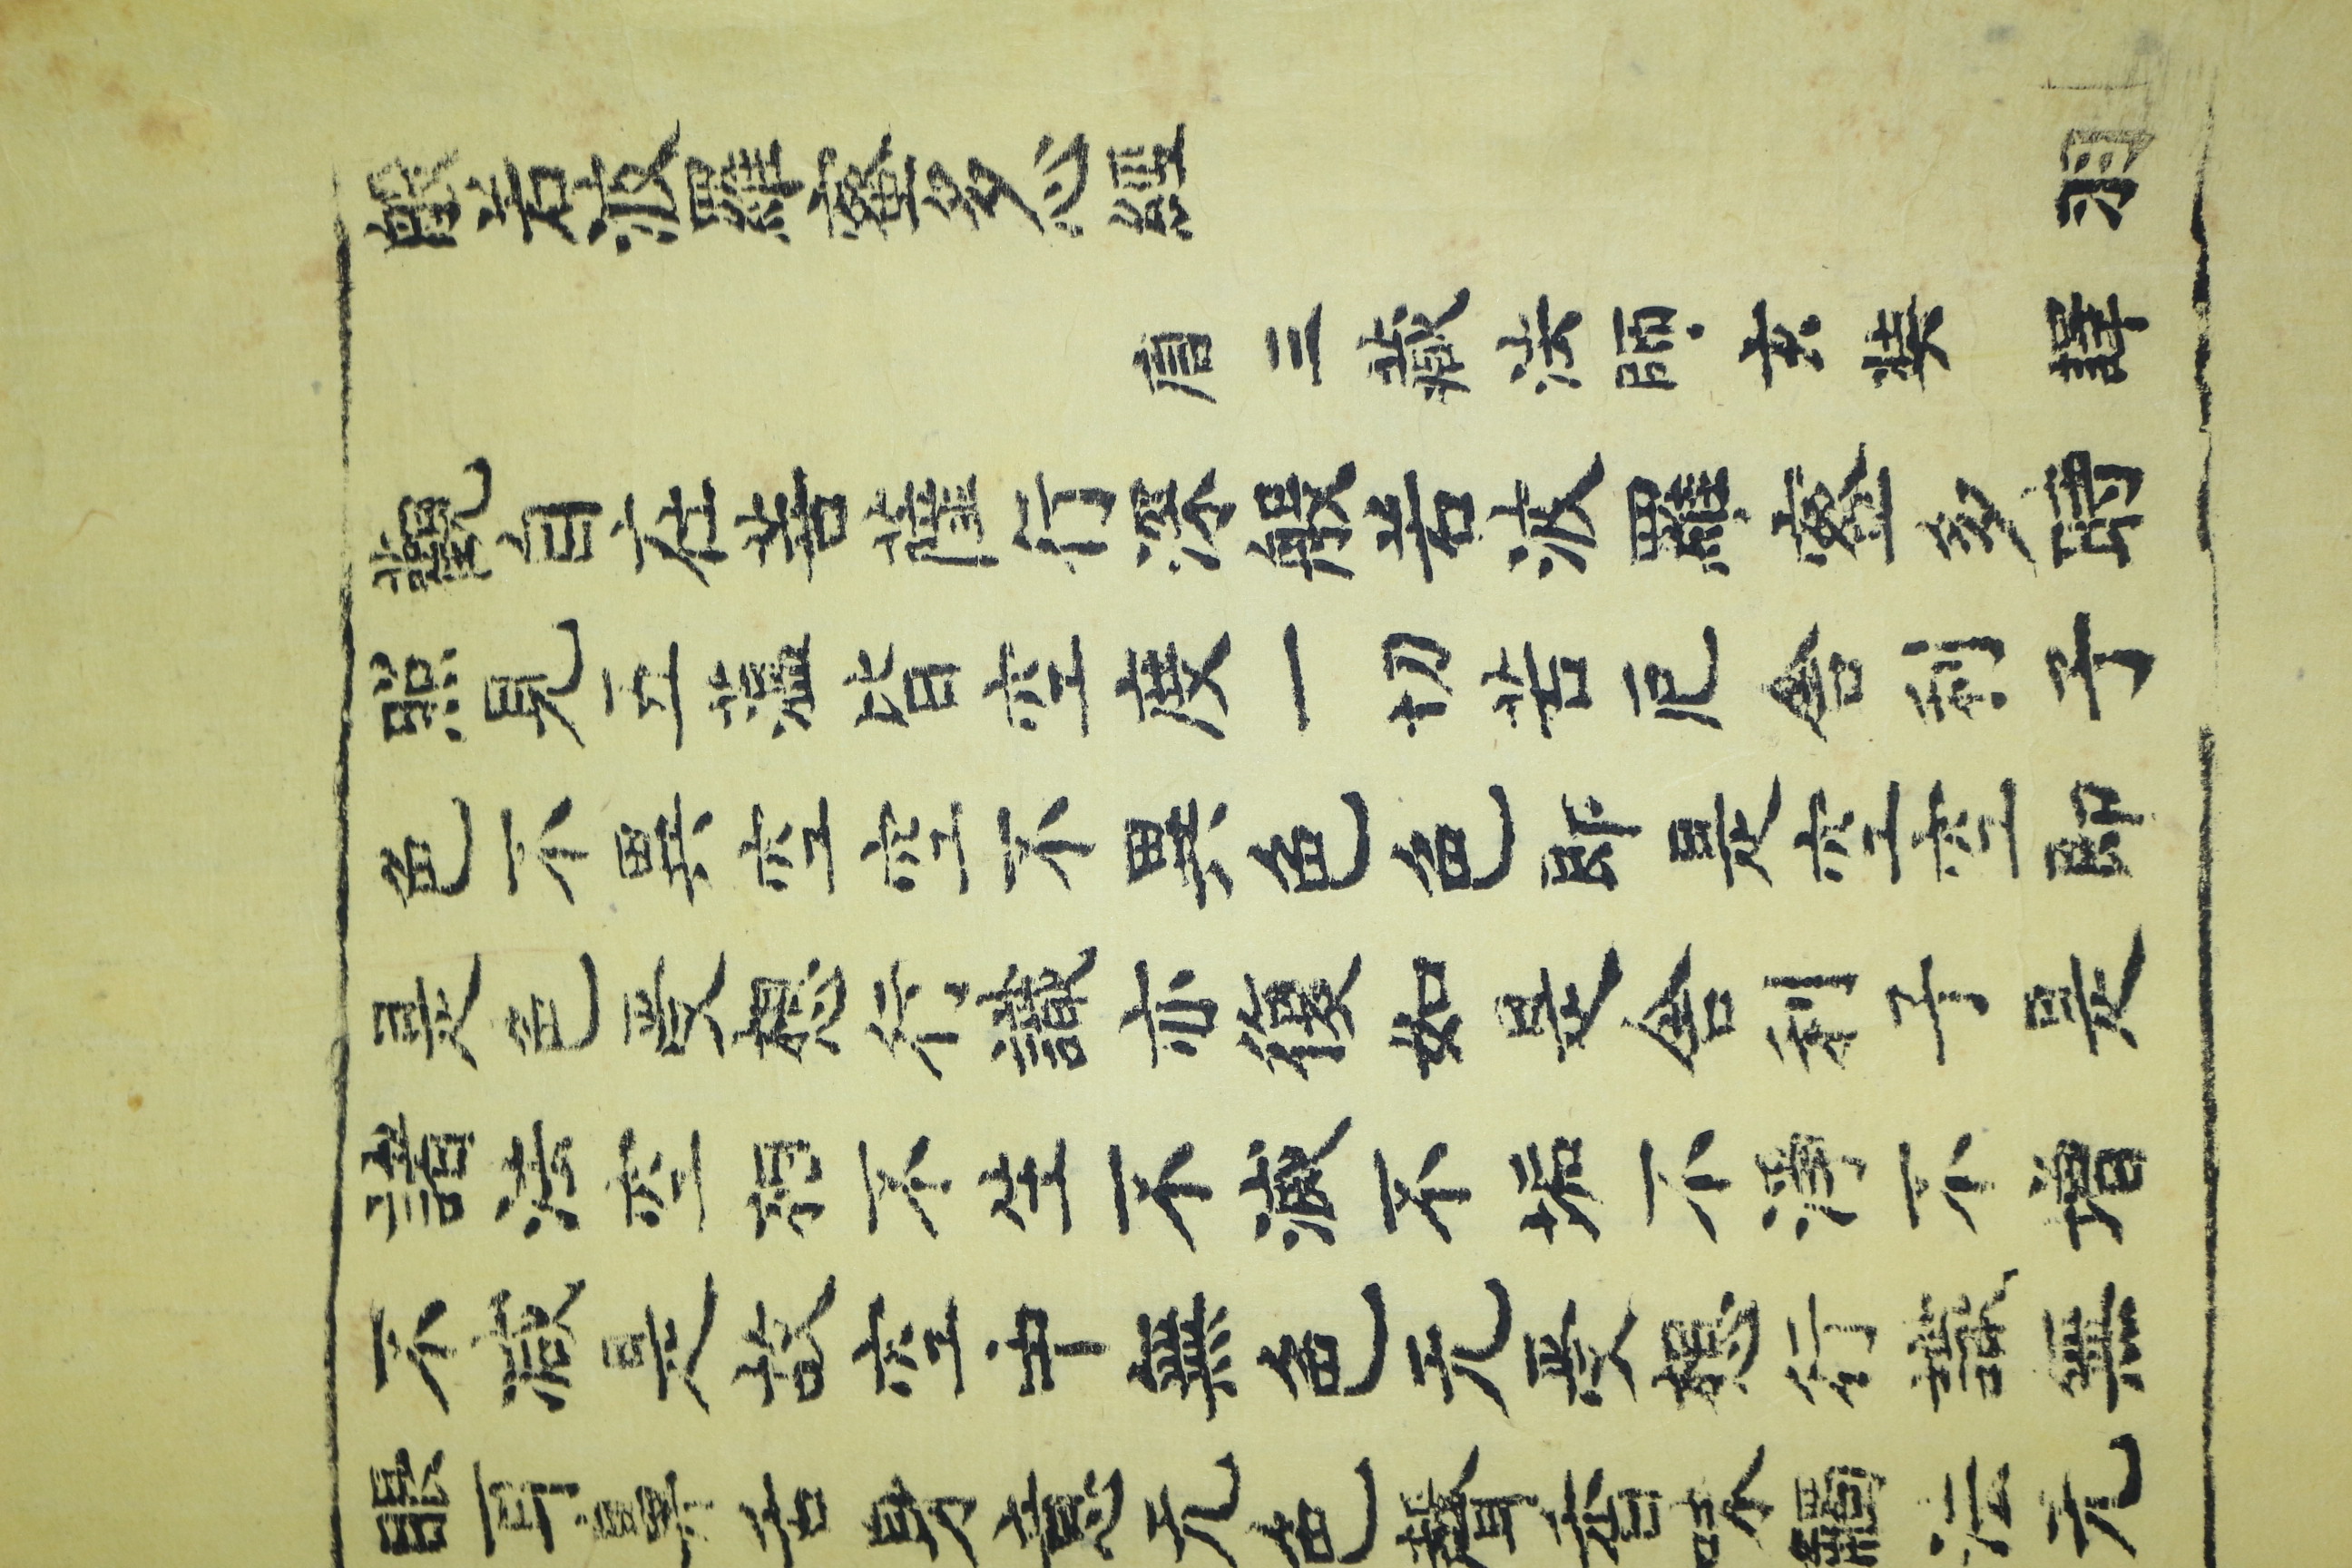 般若波羅蜜多心經 羽
唐三藏法師玄奘 譯
觀自在菩薩行深般若波羅蜜多時
照見五蘊皆空度一切苦厄舍利子
色不異空空不異色色即是空空即
是色受想行識亦復如是舍利子是
諸法空相不生不滅不垢不淨不增
不減是故空中無色无受想行識無
眼耳鼻舌身意无色聲香味觸法无